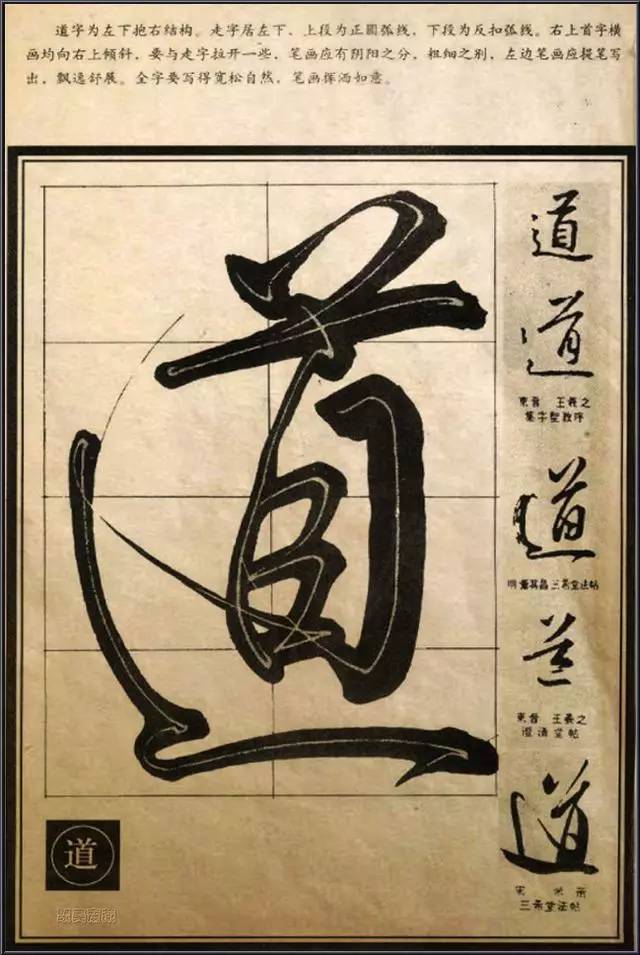 道字为左下抱右结构。走字居左下，上段为正圆弧线，下段为反扣弧线。右上首字横
画均向右上倾斜，要与走字拉开一些，笔画应有阴阳之分，粗细之别，左边笔画应提笔写
出，飘逸舒展。全字要写得宽松自然，笔画挥洒如意。
道
道
道
東晋 王羲之
集字聖教序
道
明 董其昌 三希堂法帖
道
東晋 王羲之
澄清堂帖
道
三希堂法帖
道